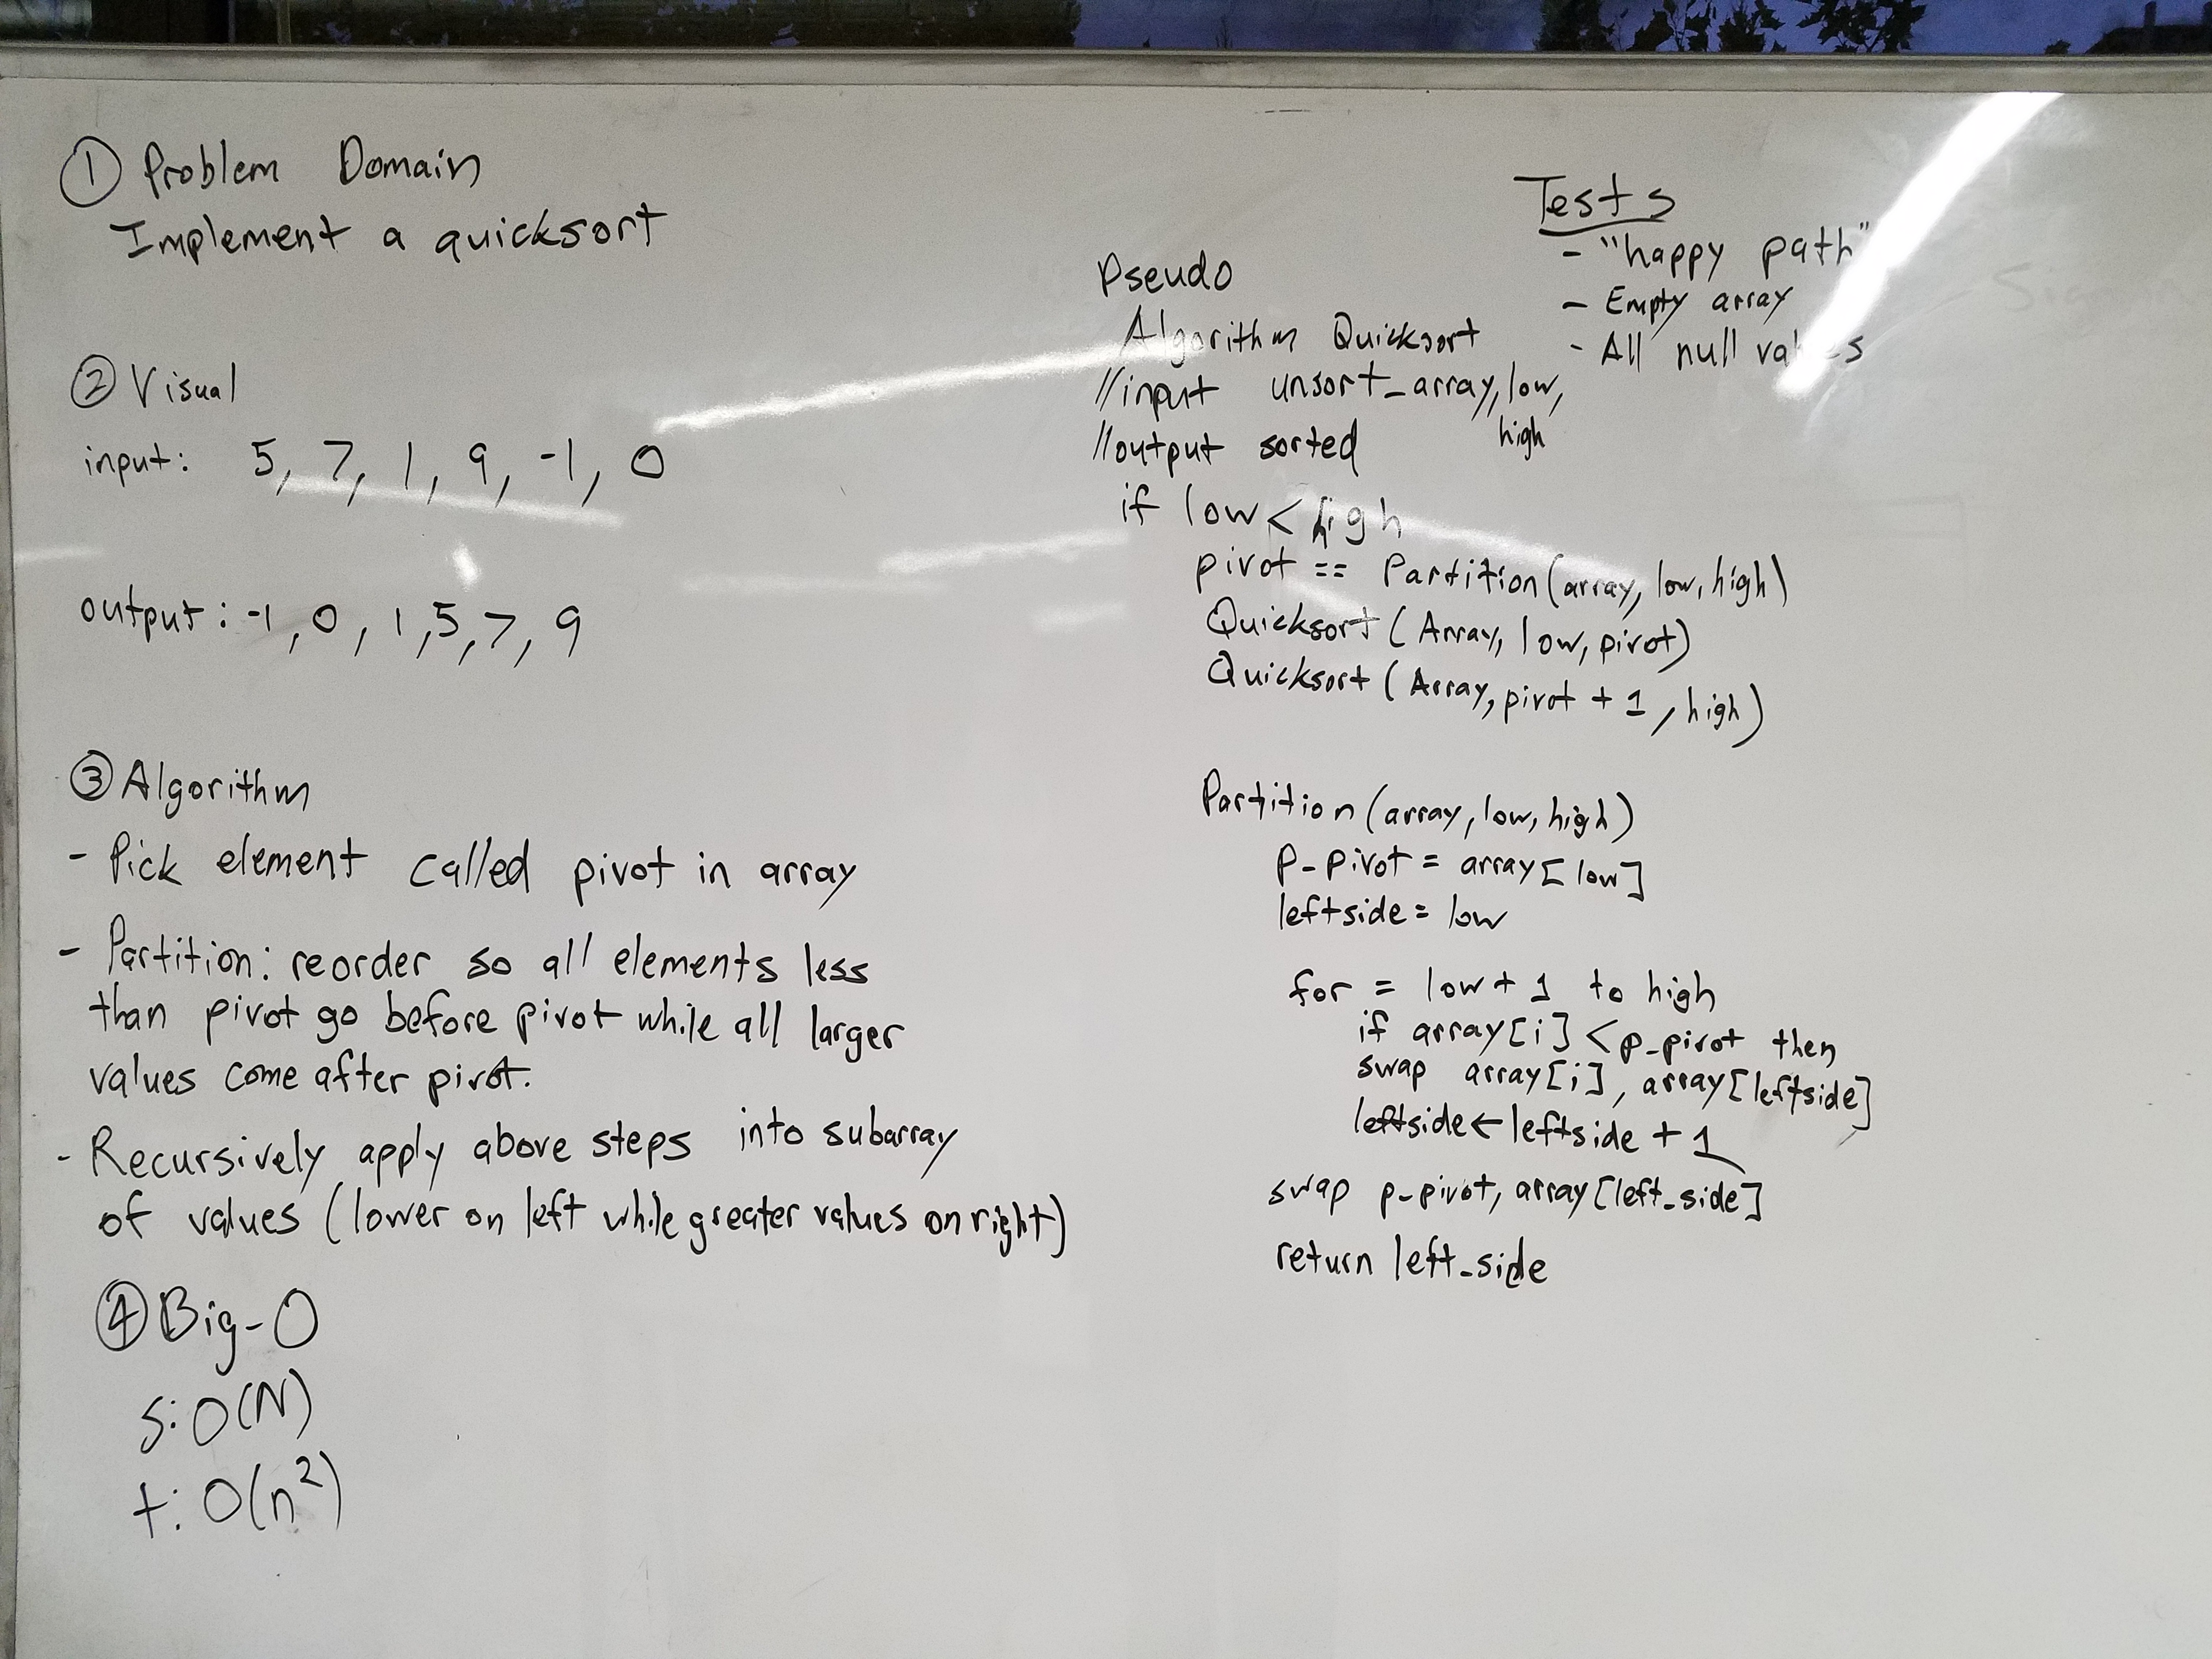 ① Problem Domain
Implement a quicksort
② Visual
input: 5, 7, 1, 9, -1, 0
output: -1, 0, 1, 5, 7, 9
③ Algorithm
- Pick element called pivot in array
- Partition: reorder so all elements less
than pivot go before pivot while all larger
values come after pivot.
- Recursively apply above steps into subarray
of values (lower on left while greater values on right)
④ Big-O
S: O(N)
t: O(n²)
Pseudo
Algorithm Quicksort
//input unsort_array, low,
high
//output sorted
if low < high
pivot == Partition(array, low, high)
Quicksort (Array, low, pivot)
Quicksort (Array, pivot + 1, high)
Partition (array, low, high)
p-pivot = array[low]
leftside = low
for = low + 1 to high
if array[i] < p-pivot then
swap array[i], array[leftside]
leftside ← leftside + 1
swap p-pivot, array[left-side]
return left-side
Tests
- "happy path"
- Empty array
- All null values